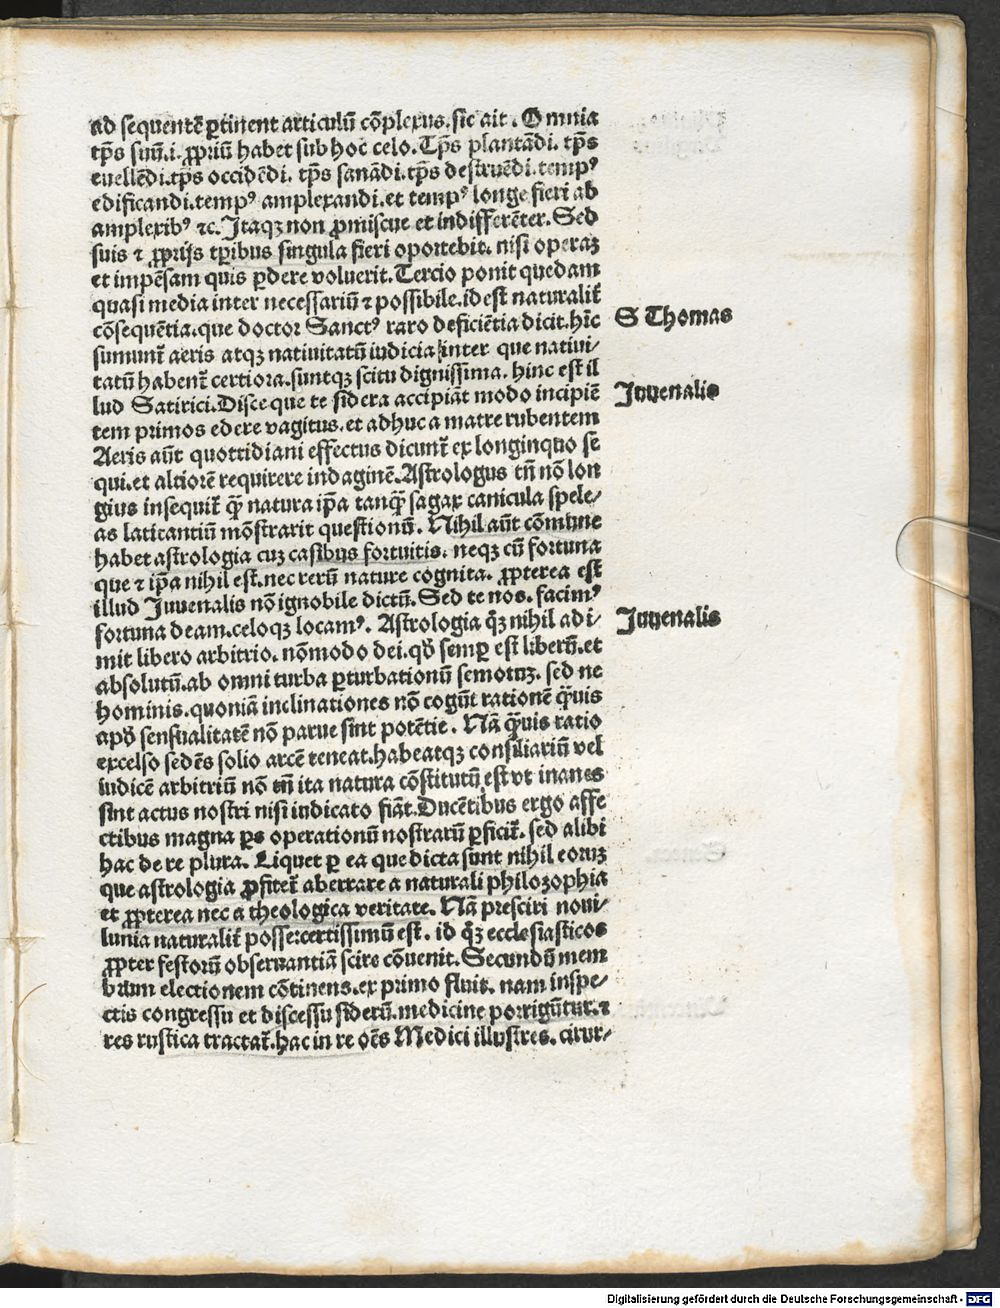 ad sequentē ꝑtinent articulū cōplexus. sic ait. Omnia
tp̄s suū .i. ꝓpriū habet sub hoc celo. Tp̄s plantādi. tp̄s
euellēdi. tp̄s occidēdi. tp̄s sanādi. tp̄s destruēdi. tempꝰ
edificandi. tempꝰ amplexandi. et tempꝰ longe fieri ab
amplexibꝰ ⁊c. Itaqꝫ non ꝓmiscue et indifferēter. Sed
suis ⁊ ꝓprijs tꝑibus singula fieri oportebit. nisi operaꝫ
et impēsam quis ꝑdere voluerit. Tercio ponit quedam
quasi media inter necessariū ⁊ possibile. id est naturalit̄
cōsequētia. que doctor Sanctꝰ raro deficiētia dicit. hīc
S Thomas
sumunt̄ aeris atqꝫ natiuitatū iudicia inter que natiui⸗
tatū habent̄ certiora. suntqꝫ scitu dignissima. hinc est il
lud Satirici. Disce que te sidera accipiāt modo incipiē
Juuenalis
tem primos edere vagitus. et adhuc a matre rubentem
Aeris aūt quottidiani effectus dicunt̄ ex longinquo se
qui. et altiorē requirere indaginē. Astrologus tn̄ nō lon
gius insequit̄ q̄ꝫ natura ip̄a tanq̄ꝫ sagax canicula spele⸗
as latitantiū mōstrarit questionū. Nihil aūt cōmune
habet astrologia cuꝫ casibus fortuitis. neqꝫ cū fortuna
que ⁊ ip̄a nihil est. nec rerū nature cognita. ꝓpterea est
illud Juuenalis nō ignobile dictū. Sed te nos. facimꝰ
fortuna deam. celoqꝫ locamꝰ. Astrologia q̄ꝫ nihil adi⸗
Juuenalis
mit libero arbitrio. nōmodo dei. qd̄ semꝑ est liberū. et
absolutū. ab omni turba ꝑturbationū semotuꝫ. sed ne
hominis. quoniā inclinationes nō cogūt rationē q̄ꝫuis
apd̄ sensualitatē nō parue sint potētie. Nā q̄ꝫuis ratio
excelso sedēs solio arcē teneat. habeatqꝫ consiliariū vel
iudicē arbitriū nō tn̄ ita natura cōstitutū est vt inanes
sint actus nostri nisi iudicato fiāt. Ducētibus ergo affe
ctibus magna ꝑs operationū nostrarū ꝑficit̄. sed alibi
hac de re plura. Liquet ꝑ ea que dicta sunt nihil eoruꝫ
que astrologia ꝓfitet̄ aberrare a naturali philozophia
et ꝓpterea nec a theologica veritate. Nā presciri noui⸗
lunia naturalit̄ posse: certissimū est. id q̄ꝫ ecclesiasticos
ꝓpter festorū obseruantiā scire cōuenit. Secundū mem
brum electionem cōtinens. ex primo fluit. nam inspe⸗
ctis congressu et discessu siderū. medicine porrigūtur. ⁊
res rustica tractat̄. hac in re oēs Medici illustres. cirur⸗
Digitalisierung gefördert durch die Deutsche Forschungsgemeinschaft - DFG